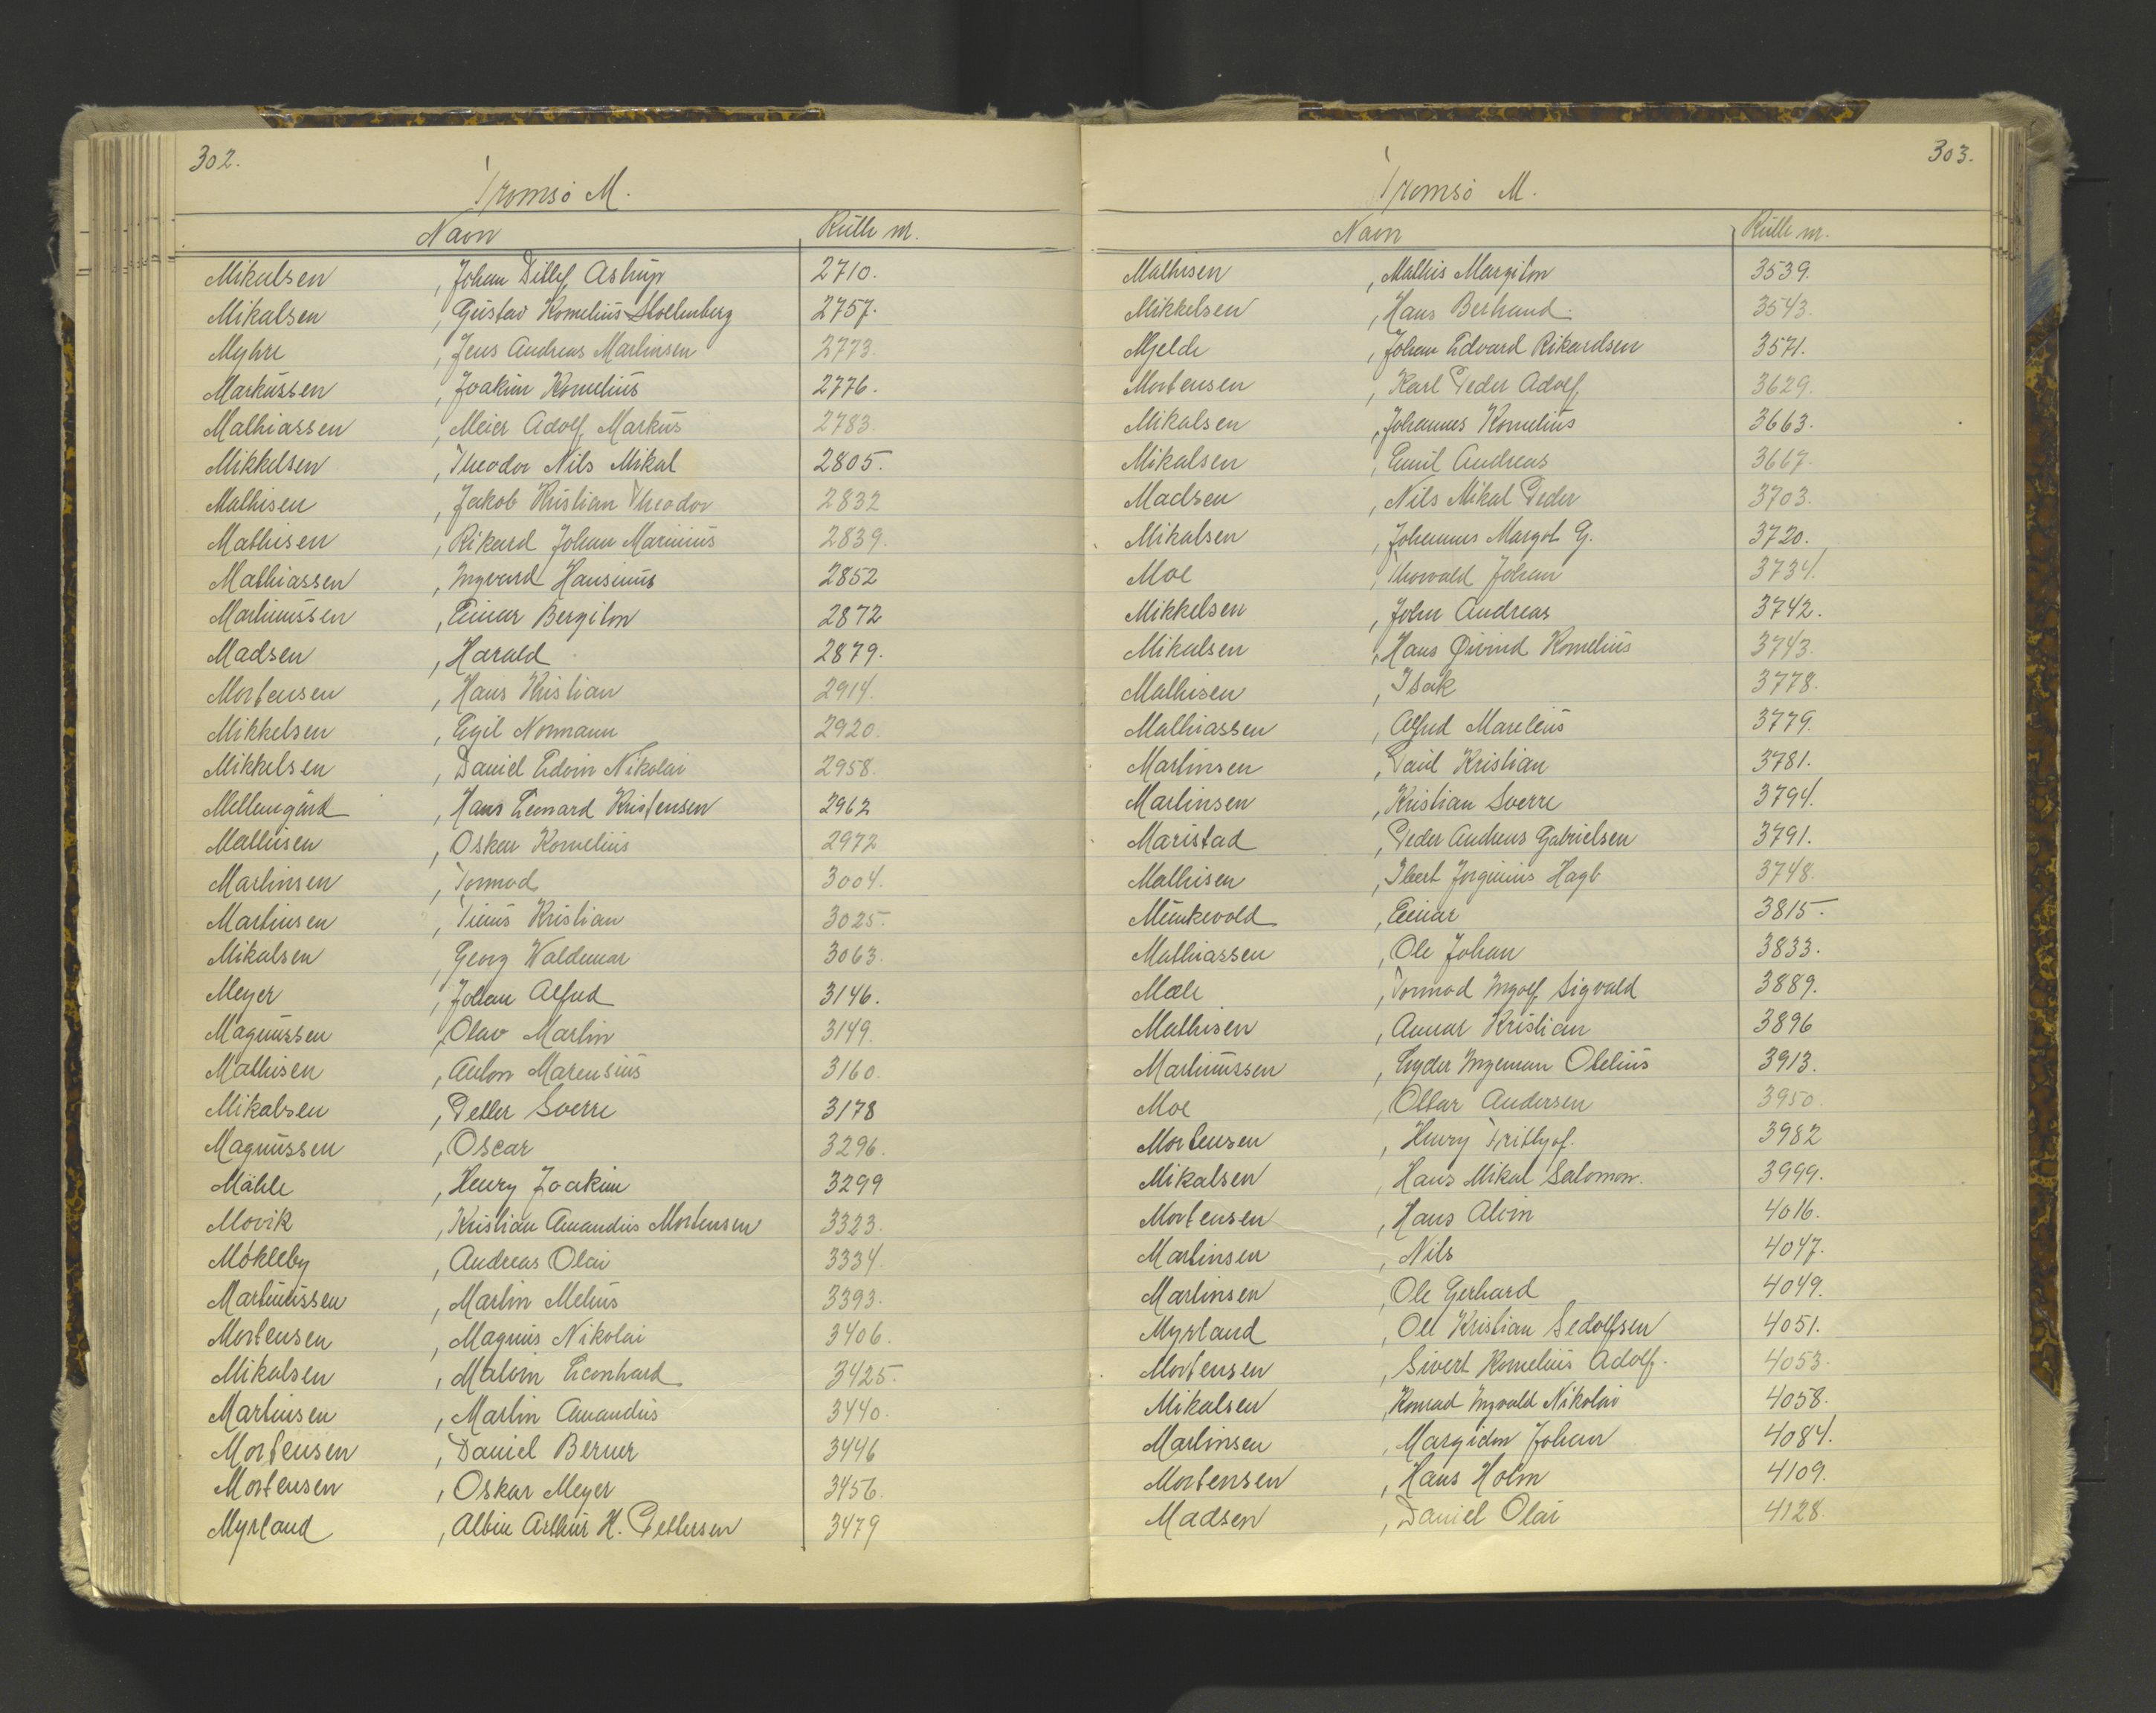 302.
Tromsö M.
Navn Rulle nr.
Mikalsen , Johan Ditlef Astrup 2710.
Mikalsen , Gustav Kornelius Stoltenberg 2757.
Myhre , Jens Andreas Martinsen 2773.
Markussen , Joakim Kornelius 2776.
Mathiassen , Meier Adolf Markus 2783.
Mikkelsen , Theodor Nils Mikal 2805.
Mathisen , Jakob Kristian Theodor 2832
Mathisen , Rikard Johan Marinius 2839.
Mathiassen , Ingvard Hansinus 2852
Martinussen , Einar Bergiton 2872
Madsen , Harald 2879.
Mortensen , Hans Kristian 2914.
Mikkelsen , Egil Normann 2920.
Mikkelsen , Daniel Edvin Nikolai 2958.
Mellemgård , Hans Leonard Kristensen 2962
Mathisen , Oskar Kornelius 2972
Martinsen , Tormod 3004.
Martinsen , Tinus Kristian 3025.
Mikalsen , Georg Waldemar 3063.
Meyer , Johan Alfred 3146.
Magnussen , Olav Martin 3149.
Mathisen , Anton Marensius 3160.
Mikalsen , Petter Sverre 3178
Magnussen , Oscar 3296.
Mähle , Henry Joakim 3299
Movik , Kristian Amandus Mortensen 3323.
Mökleby , Andreas Olai 3334.
Martinussen , Martin Melius 3393.
Mortensen , Magnus Nikolai 3406.
Mikalsen , Malvin Leonhard 3425.
Martinsen , Martin Amandus 3440.
Mortensen , Daniel Berner 3446
Mortensen , Oskar Meyer 3456.
Myrland , Albin Arthur H. Pettersen 3479
303.
Tromsö M.
Navn Rulle nr.
Mathisen , Mathis Margiton 3539.
Mikkelsen , Hans Berhand. 3543.
Mjelde , Johan Edvard Rikardsen 3571.
Mortensen , Karl Peder Adolf 3629.
Mikalsen , Johannes Kornelius 3663.
Mikalsen , Emil Andreas 3667.
Madsen , Nils Mikal Peder 3703.
Mikalsen , Johannes Margot G. 3720.
Moe , Thorvald Johan 3734.
Mikkelsen , John Andreas 3742.
Mikalsen , Hans Øivind Kornelius 3743.
Mathisen , Isak 3778.
Mathiassen , Alfred Marelius 3779.
Martinsen , Paul Kristian 3781.
Martinsen , Kristian Sverre 3794.
Maristad , Peder Andreas Gabrielsen 3791.
Mathisen , Ibert Jorginius Hagb 3748.
Munkevold , Einar 3815.
Mathiassen , Ole Johan 3833.
Mæle , Tormod Ingolf Sigvald 3889.
Mathisen , Annar Kristian 3896
Martinussen , Eyder Ingeman Otelius 3913.
Moe , Ottar Andersen 3950.
Mortensen , Henry Frithjof. 3982
Mikalsen , Hans Mikal Salomon. 3999.
Mortensen , Hans Alvin 4016.
Martinsen , Nils 4047.
Martinsen , Ole Gerhard 4049.
Myrland , Ole Kristian Sedolfsen 4051.
Mortensen , Sivert Kornelius Adolf. 4053.
Mikalsen , Konrad Ingvald Nikolai 4058.
Martinsen , Margidon Johan 4084.
Mortensen , Hans Holm 4109.
Madsen , Daniel Olai 4128.